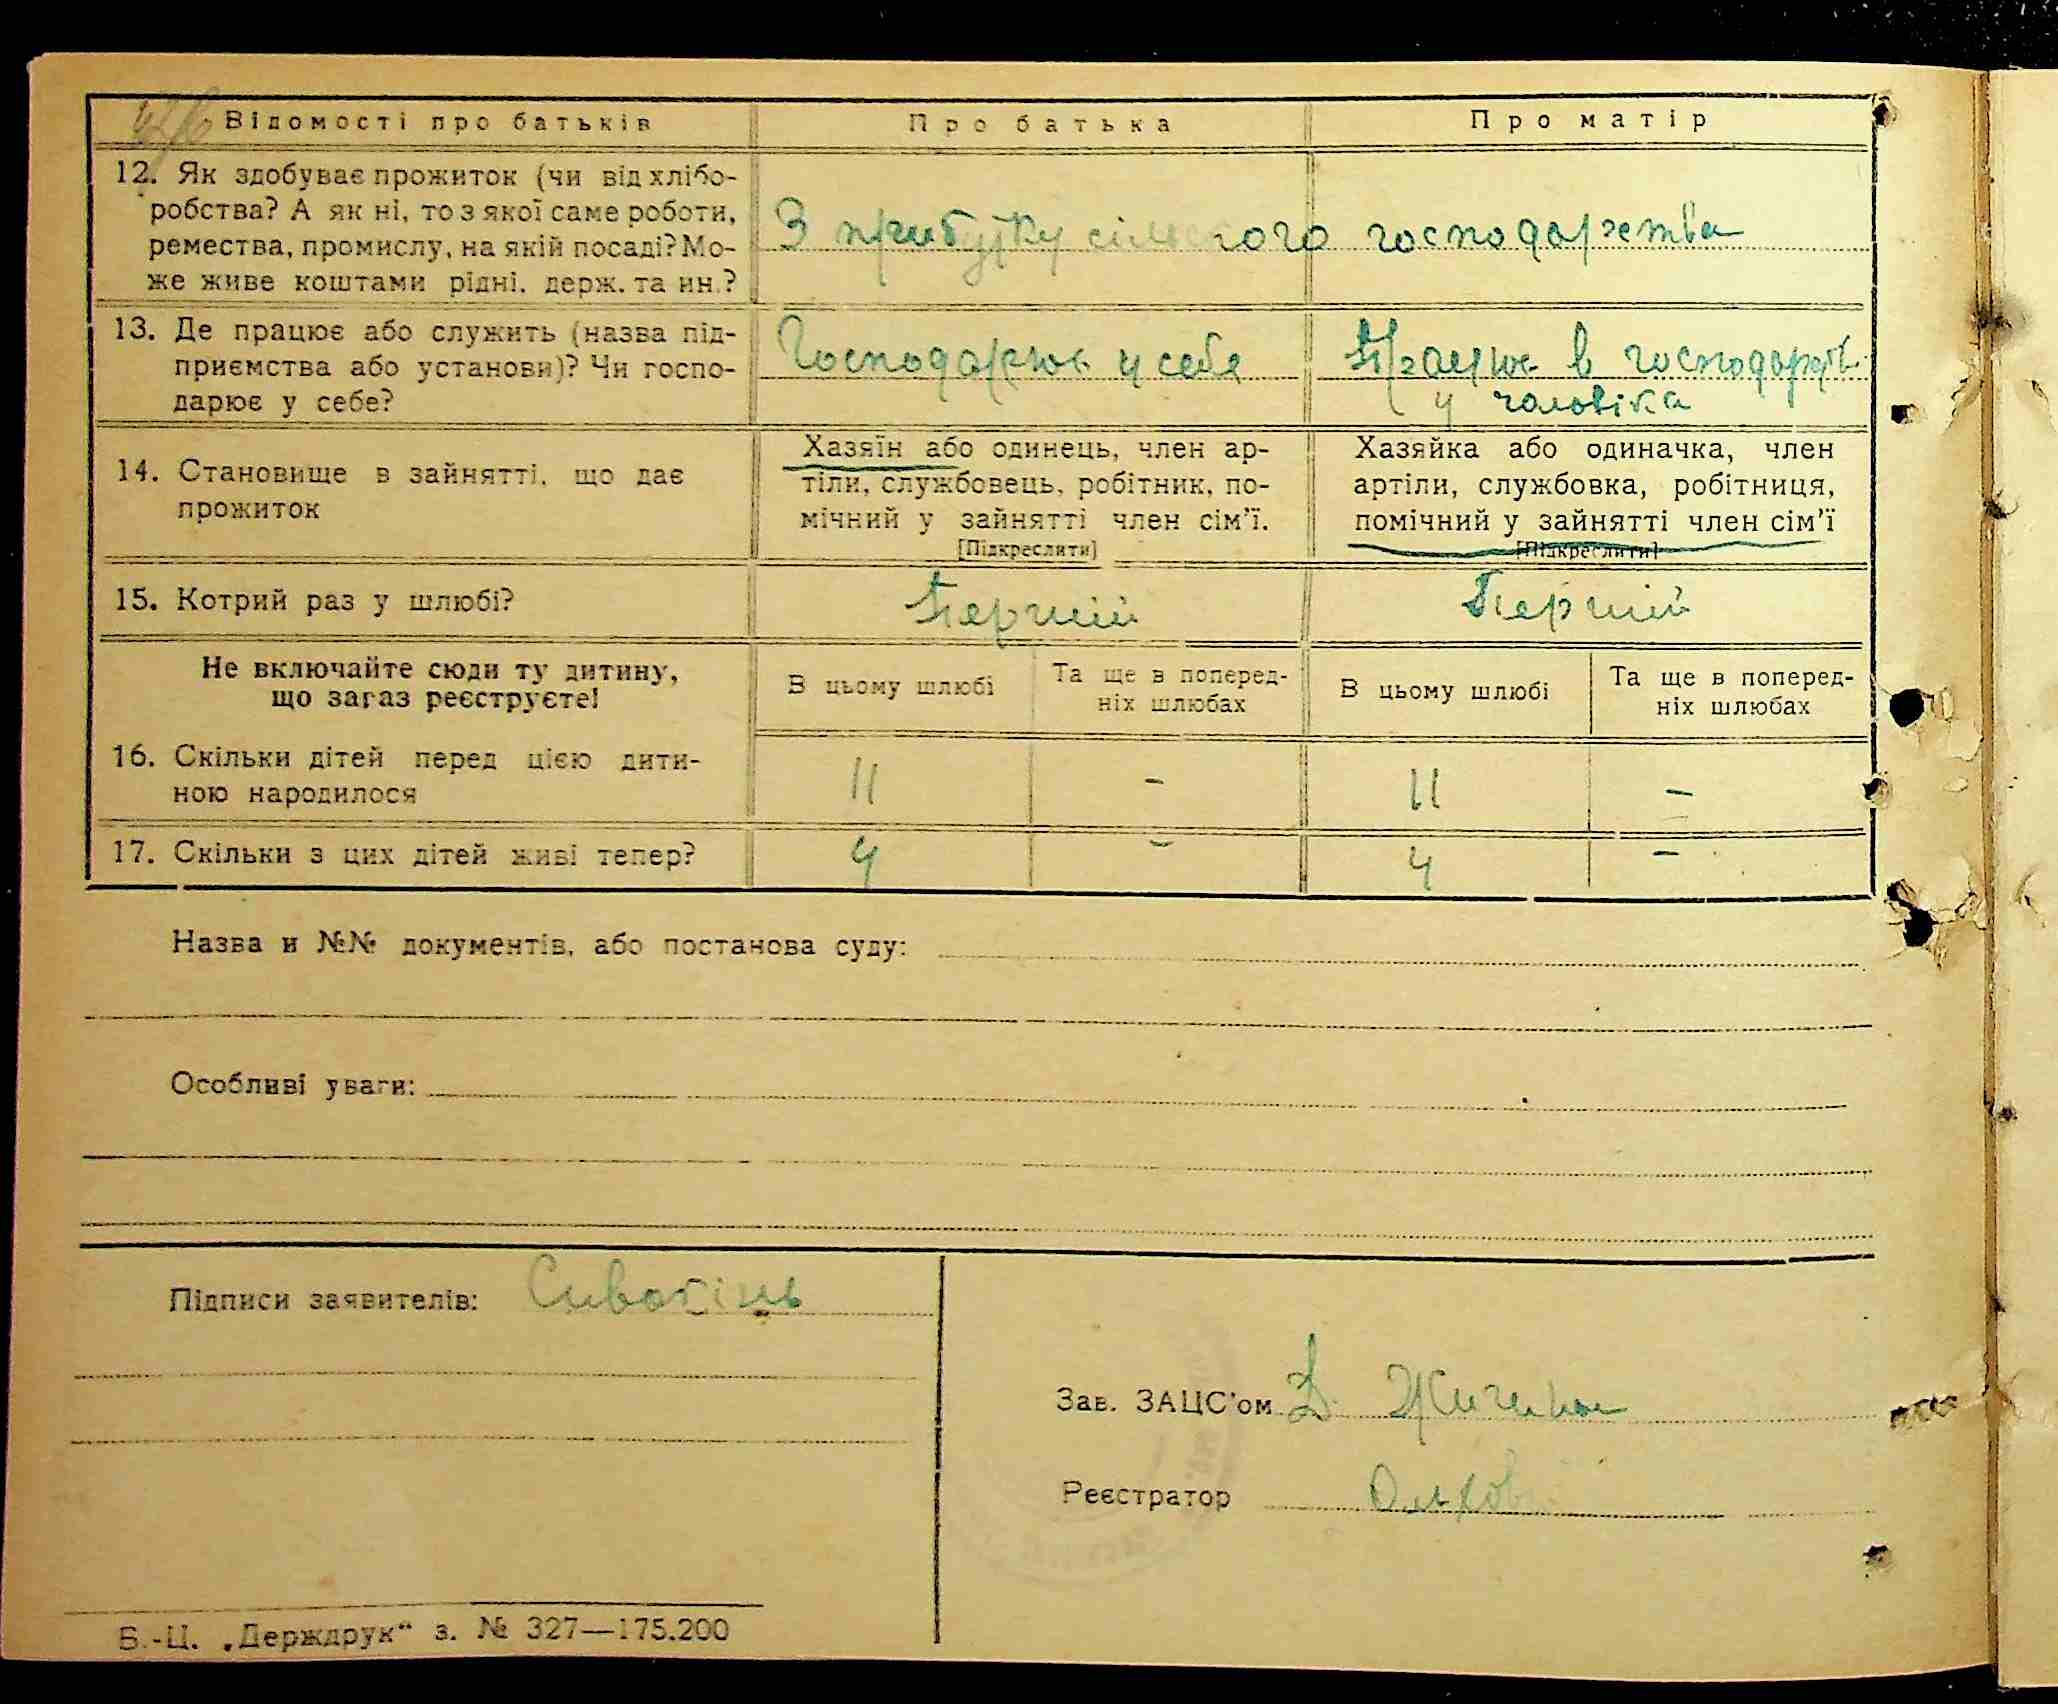 Відомості про батьків
Про батька
Про матір
12. Як здобуває прожиток (чи від хлібо-
робства? А як ні, то з якої саме роботи,
ремества, промислу, на якій посаді? Мо-
же живе коштами рідні, держ. та ин.?
З прибутку сільского господарства
13. Де працює або служить (назва під-
приємства або установи)? Чи госпо-
дарює у себе?
Господарює у себе
Працює в господарстві
у чоловіка
14. Становище в зайнятті, що дає
прожиток
Хазяїн або одинець, член ар-
тіли, службовець, робітник, по-
мічний у зайнятті член сім'ї.
[Підкреслити]
Хазяйка або одиначка, член
артіли, службовка, робітниця,
помічний у зайнятті член сім'ї
[Підкреслити]
15. Котрий раз у шлюбі?
Перший
Перший
Не включайте сюди ту дитину,
що зараз реєструєте!
В цьому шлюбі
Та ще в поперед-
ніх шлюбах
В цьому шлюбі
Та ще в поперед-
ніх шлюбах
16. Скільки дітей перед цією дити-
ною народилося
11
-
11
-
17. Скільки з цих дітей живі тепер?
4
-
4
-
Назва и №№ документів, або постанова суду:
Особливі уваги:
Підписи заявителів:
Зав. ЗАЦС'ом
Реєстратор
Б.-Ц. „Держдрук“ з. № 327—175.200